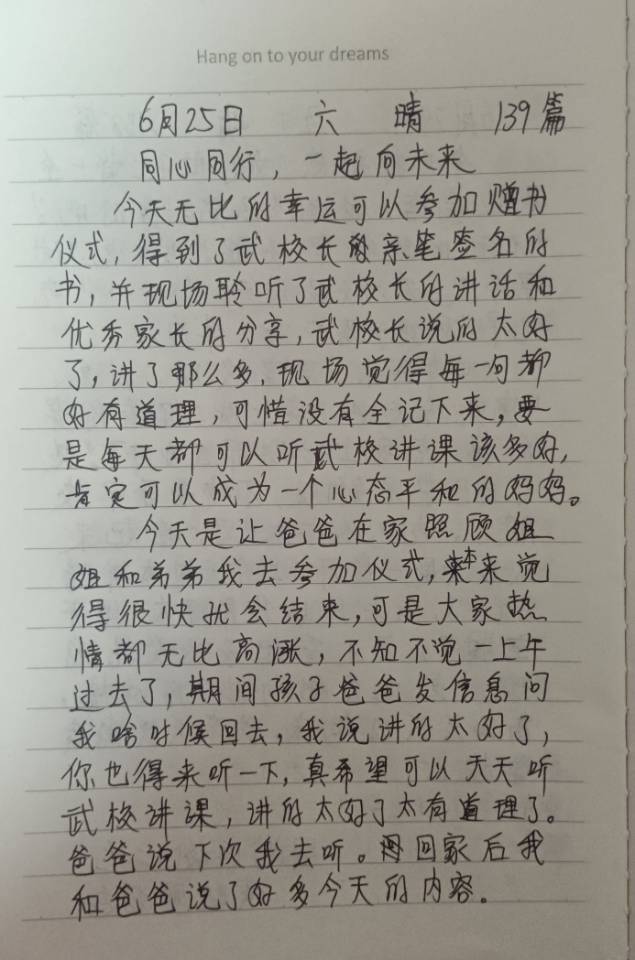 Hang on to your dreams
6月25日 六 晴 139篇
同心同行，一起向未来
今天无比的幸运可以参加赠书
仪式，得到了武校长的亲笔签名的
书，并现场聆听了武校长的讲话和
优秀家长的分享，武校长说的太好
了，讲了那么多，现场觉得每一句都
好有道理，可惜没有全记下来，要
是每天都可以听武校讲课该多好，
肯定可以成为一个心态平和的妈妈。
今天是让爸爸在家照顾姐
姐和弟弟我去参加仪式，本来觉
得很快就会结束，可是大家热
情都无比高涨，不知不觉一上午
过去了，期间孩子爸爸发信息问
我啥时候回去，我说讲的太好了，
你也得来听一下，真希望可以天天听
武校讲课，讲的太好了太有道理了。
爸爸说下次我去听。回家后我
和爸爸说了好多今天的内容。